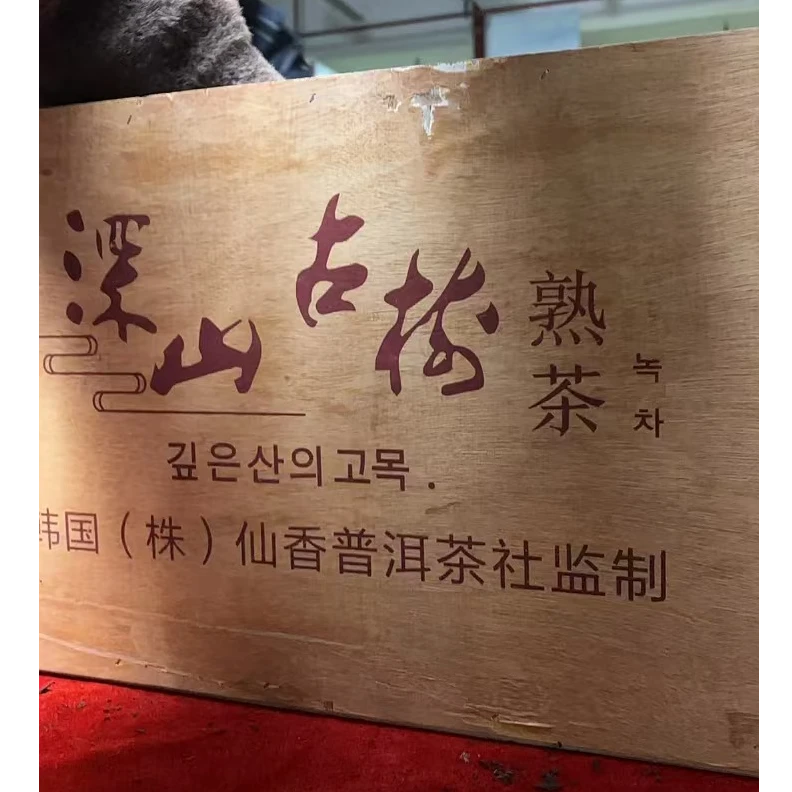 深山古树
熟茶
녹차
깊은산의고목.
韩国（株）仙香普洱茶社监制